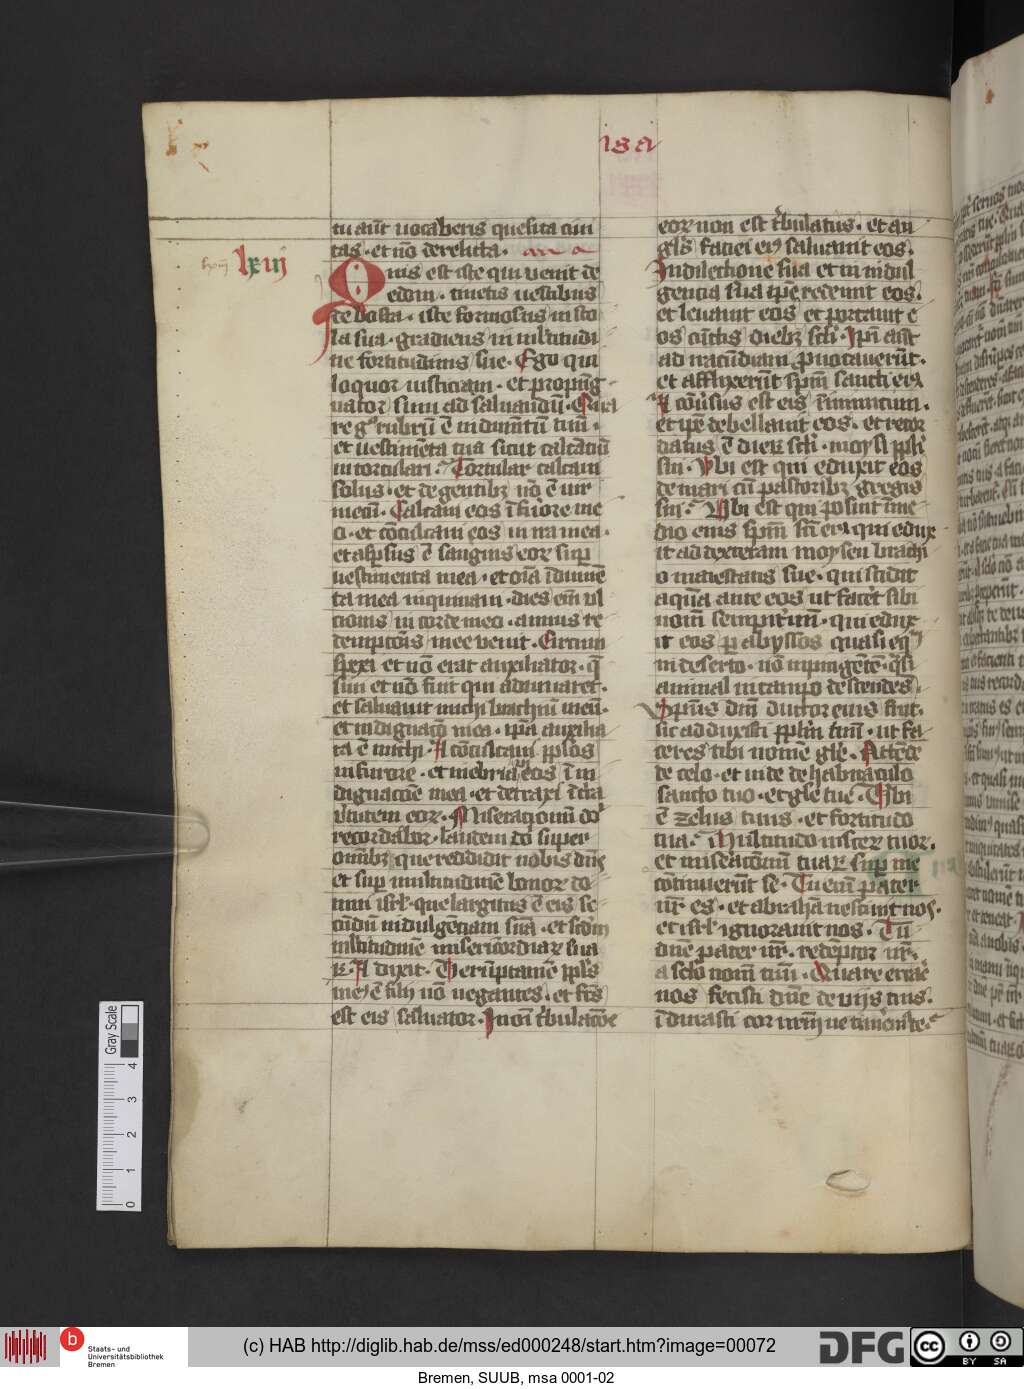 isa
tu aut̄ vocaberis quesita ciui
tas · et nō derelicta ·
lxiij
Quis est iste qui venit de
edom · tinctis vestibus
de bosra · iste formosus in sto
la sua · gradiens in ml̄titudi
ne fortitudinis sue · Ego qui
loquor iusticiam · et propug
nator sum ad saluandū ·
et vestimēta tua sicut calcātiū
in torculari · Torcular calcaui
solus · et de gentibꝫ nō ē uir
mecū · Calcaui eos ī furore me
o · et cōculcaui eos in ira mea ·
et asꝑsus ē sanguis eoꝝ suꝑ
uestimenta mea · et oīa īdumē
ta mea inquinaui · dies em̄ vl
cionis in corde meo · annus re
dempcōnis mee venit · Circum
spexi et nō erat auxiliator · q̄
siui et nō fuit qui adiuuaret ·
et saluauit michi brachiū meū ·
et indignacō mea · ip̄a auxilia
ta ē michi · Et cōculcaui pp̄los
in furore · et inebriaui eos ī in
dignacōe mea · et detraxi ī t̄ra
v̄tutem eoꝝ · Miseracionū dn̄i
recordabor · laudem dn̄i super
omībꝫ que reddidit nobis dn̄s
et suꝑ multitudinē bonoꝝ do
mui isrl̄ · que largitus ē eis se
cūdū indulgēciam suā · et scd̄m
ml̄titudinē misericordiaꝝ sua
ꝝ · Et dixit · Verūptamē pp̄ls
me9 ē filij nō negantes · et fc̄s
est eis saluator · In om̄ t̄bulacōe
eoꝝ non est t̄bulatus · et an
gl̄s faciei ei9 saluauit eos ·
In dilectione sua et in indul
gencia sua ip̄e redemit eos ·
et leuauit eos et portauit e
os cūctis diebꝫ scl̄i · Ip̄i aut̄
ad iracūdiam ꝓuocauerūt ·
et afflixerūt sp̄m sancti ei9
Et cōu̇sus est eis ī inimicum ·
et ip̄e debellauit eos · et recor
datus ē dieꝝ scl̄i · moysi pp̄li
sui · Vbi est qui eduxit eos
de mari cū pastoribꝫ gregis
sui · Vbi est qui posuit ī me
dio eius sp̄m sc̄i ei9 qui edux
it ad dexteram moysen brachi
o maiestatis sue · qui scidit
aquā ante eos ut facēt sibi
nom̄ sempit̄nū · qui edux
it eos ꝑ abyssos quasi eq̄
in deserto · nō inpingētē · q̄si
animal in campo descendēs ·
Sp̄us dn̄i ductor eius fuit ·
sic adduxisti pp̄lm tuū · ut fa
ceres tibi nomē gl̄e · Attēde
de celo · et uide de habitaculo
sancto tuo · et gl̄e tue · Vbi
ē zelus tuus · et fortitudo
tua · Multitudo uisceꝝ tuoꝝ ·
et miseracōnū tuaꝝ suꝑ me
cōtinuerūt se · Tu enī pater
nr̄ es · et abrahā nesciuit nos ·
et isrl̄ ignorauit nos · Tu
dn̄e pater nr̄ · redēptor nr̄ ·
a sclo nom̄ tuū · Quare errar̄e
nos fecisti dn̄e de vijs tuis ·
īdurasti cor nrm̄ ne timēm9 te ·
Gray Scale
0 1 2 3 4
Staats- und
Universitätsbibliothek
Bremen
(c) HAB http://diglib.hab.de/mss/ed000248/start.htm?image=00072
DFG
cc
BY SA
Bremen, SUUB, msa 0001-02